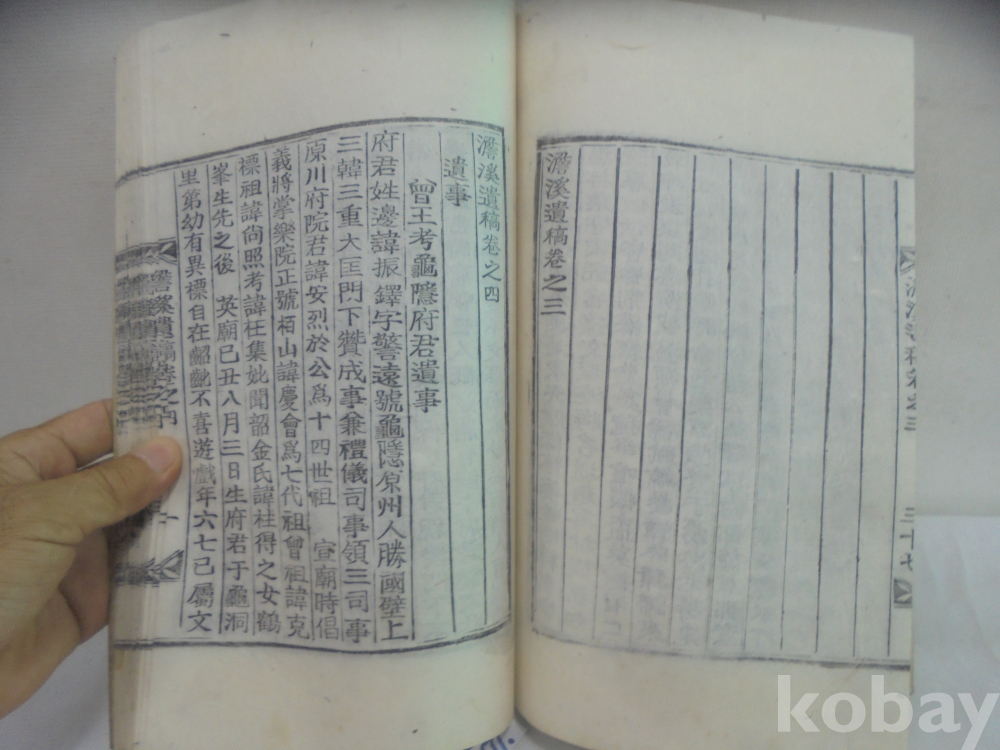 澹溪遺稿卷之三
三十七
澹溪遺稿卷之三
澹溪遺稿卷之四
遺事
曾王考龜隱府君遺事
府君姓邊諱振鐸字警遠號龜隱原州人勝國壁上
三韓三重大匡門下贊成事兼禮儀司事領三司事
原川府院君諱安烈於公爲十四世祖 宣廟時倡
義將掌樂院正號栢山諱慶會爲七代祖曾祖諱克
標祖諱尙照考諱枉集妣聞韶金氏諱柱得之女鶴
峯生先之後 英廟己丑八月三日生府君于龜洞
里第幼有異標自在齠齔不喜遊戲年六七已屬文
澹溪遺稿卷之四
kobay